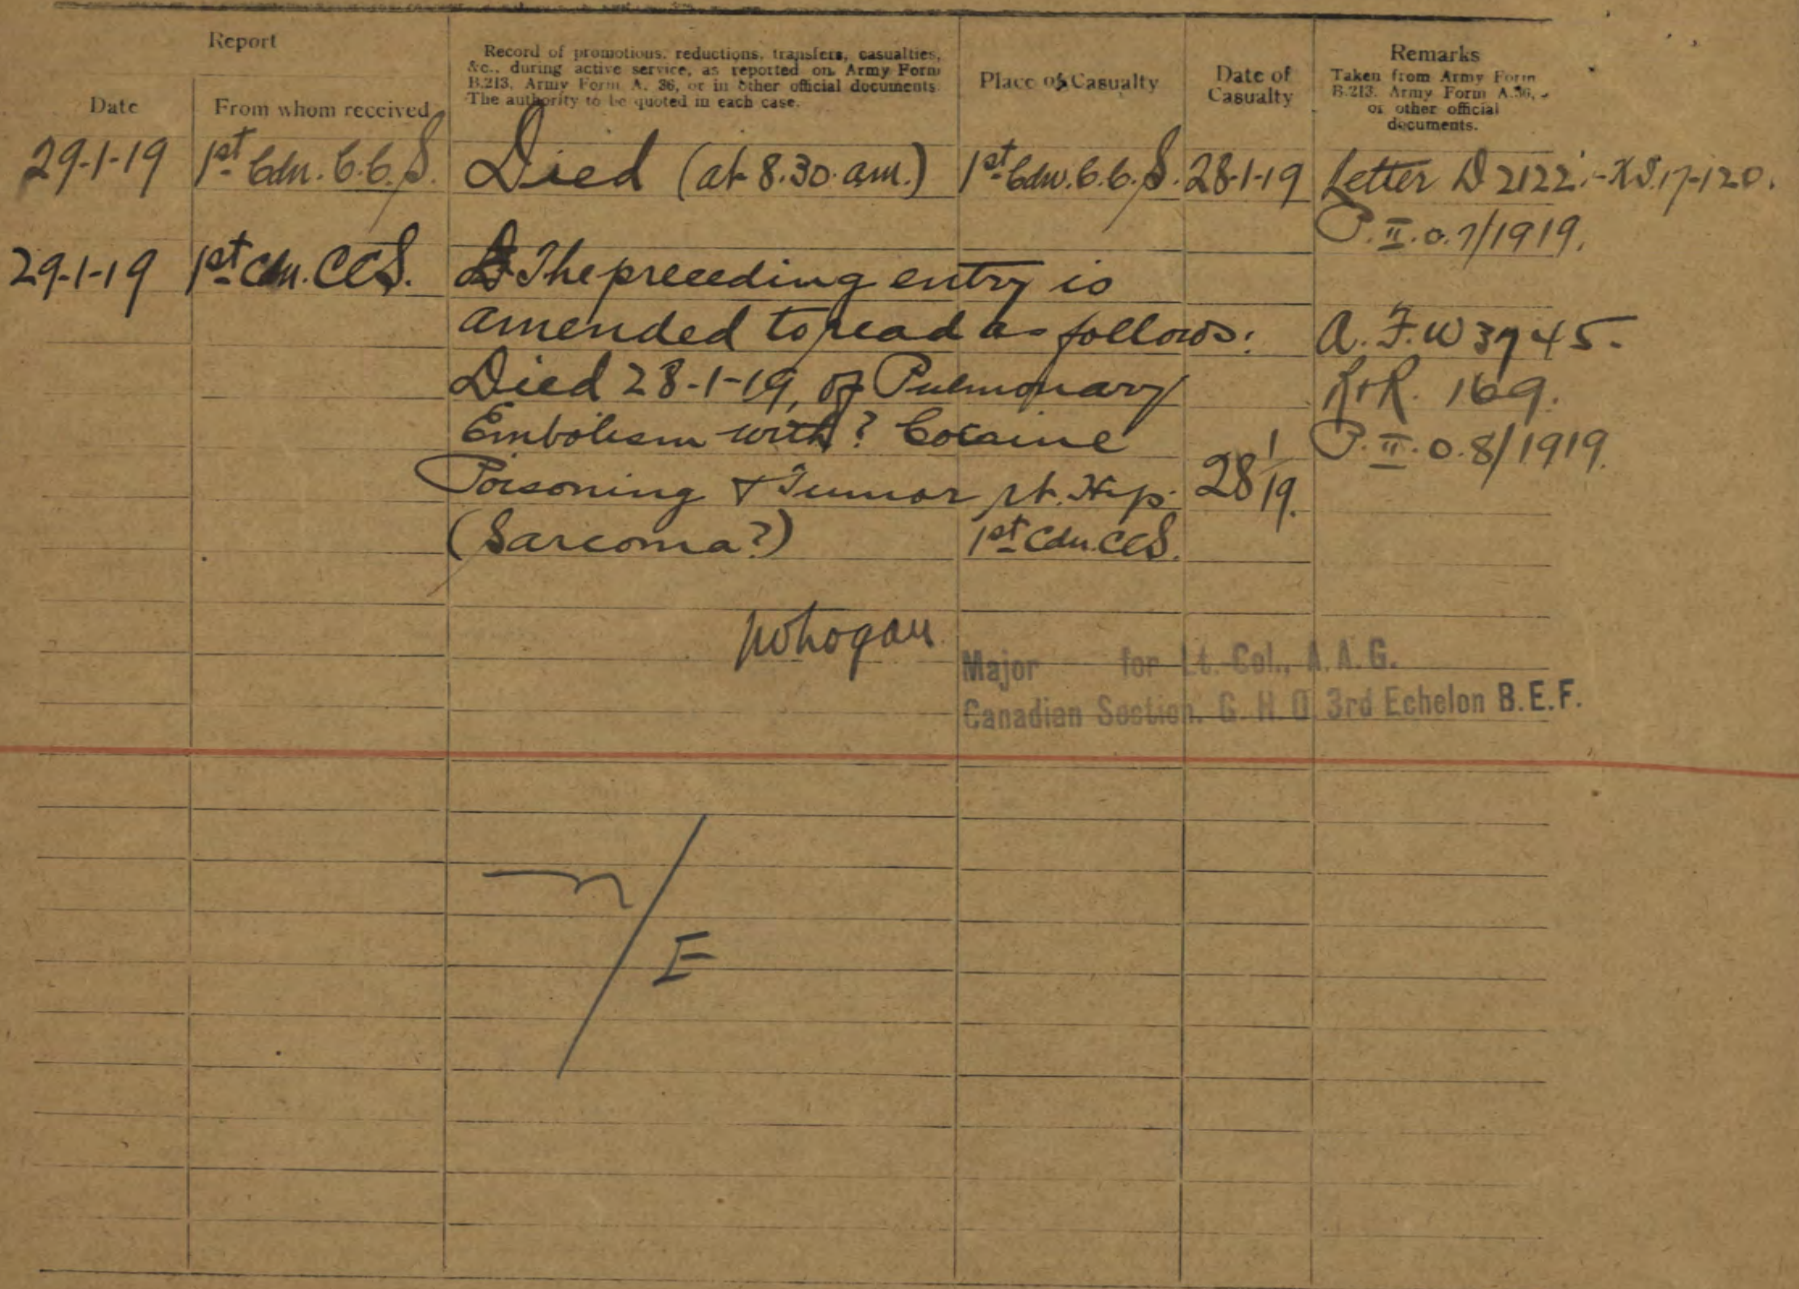 Report
Date
From whom received
Record of promotions, reductions, transfers, casualties,
&c., during active service, as reported on Army Form
B.213, Army Form A. 36, or in other official documents
The authority to be quoted in each case.
Place of Casualty
Date of
Casualty
Remarks
Taken from Army Form
B.213, Army Form A.36,
or other official
documents.
29-1-19 1st Cdn. C.C.S. Died (at 8.30 am.) 1st Cdn. C.C.S. 28-1-19 Letter D 2122
P. II. O. 7/1919.
29-1-19 1st Cdn. CCS. The preceeding entry is
amended to read as follows: A.F.W 3745.
Died 28-1-19, of Pulmonary R+R. 169.
Embolism with? Cocaine P. II. O. 8/1919.
Poisoning & Tumor rt. Hip. 28/1/19.
(Sarcoma?) 1st Cdn. CCS.
Major for Lt.-Col., A.A.G.
Canadian Section, G.H.Q. 3rd Echelon B.E.F.
E